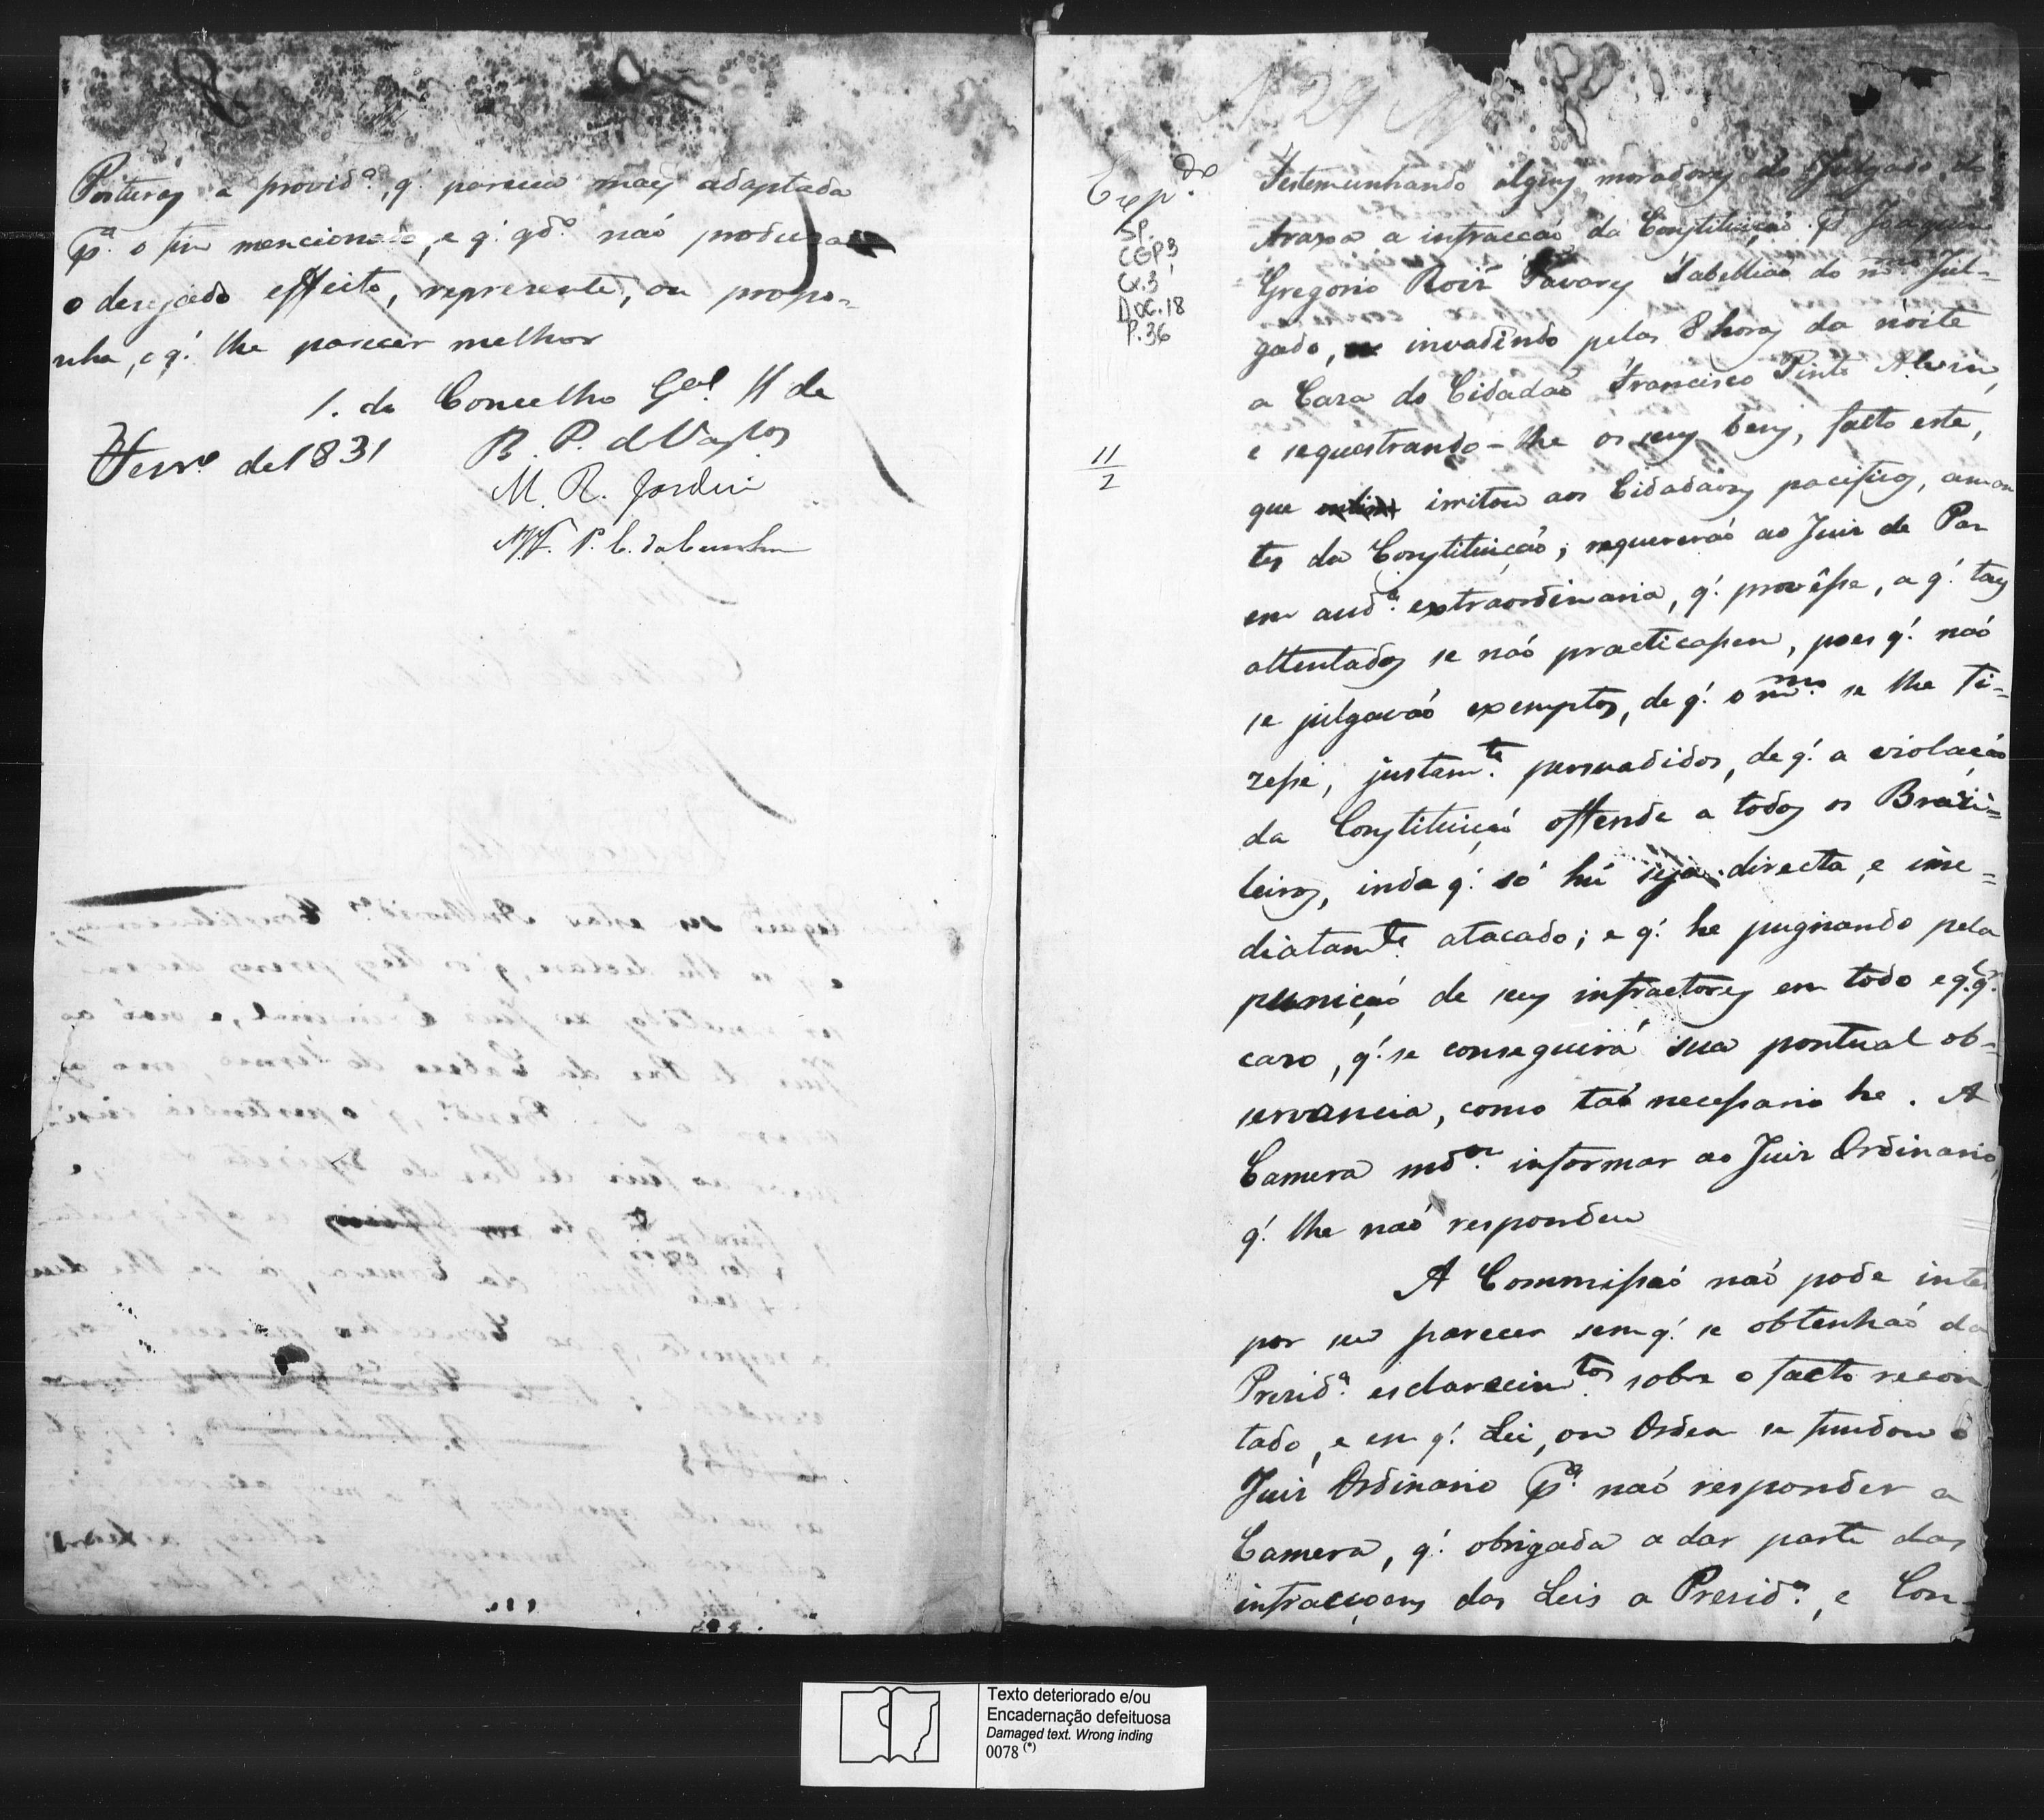 Posturas a provid.ª, q.' pareceu mais adaptada
p.ª o fim mencionado, e q.' qd.º naó produza
o desejado effeito, represente, ou propo-
nha, o q.' lhe parecer melhor
S. do Concelho G.al 11 de
Fever.º de 1831
R. P. d Vasc.os
M. R. Jardim
P. C. da Cunha
N.º 29
Exp.de
SP.
CGP3
Cx.3
Doc.18
P.36
11
2
Testemunhando alguns moradores do Julgado do
Araxá a infracçaó da Constituiçaó p.r Joaquim
Gregorio Roiz Tavares Tabelliaó do m.mo Jul-
gado, invadindo pelas 8 horas da noite
a Caza do Cidadaó Francisco Pinto
e sequestrando-lhe os seus bens, facto este,
que irritou aos Cidadaós pacificos, aman
tes da Constituiçaó; requereraó ao Juiz de Paz
em aud.ª extraordinaria, q.' provêsse, a q.' taes
attentados se naó practicassem, pois q.' naó
se julgavaó exemptos, de q.' o m.mo se lhe fi-
zesse, justam.te persuadidos, de q.' a violaçaó
da Constituiçaó offende a todos os Brazi-
leiros, inda q.' só hú seja directa, e ime-
diatam.te atacado; e q.' he pugnando pela
puniçaó de seus infractores em todo e q.q.r
caso, q.' se conseguirá sua pontual ob-
servancia, como taó necessaria he. A
Camera md.ou informar ao Juiz Ordinario,
q.' lhe naó respondeu
A Commissaó naó pode inter
por seu parecer sem q.' se obtenhaó da
Presid.ª esclarecim.tos sobre o facto recon
tado, e em q.' Lei, ou Ordem se fundou o
Juiz Ordinario p.ª naó responder a
Camera, q.' obrigada a dar parte das
infracçoens das Leis a Presid.ª, e Con-
Texto deteriorado e/ou
Encadernação defeituosa
Damaged text. Wrong inding
0078 (*)